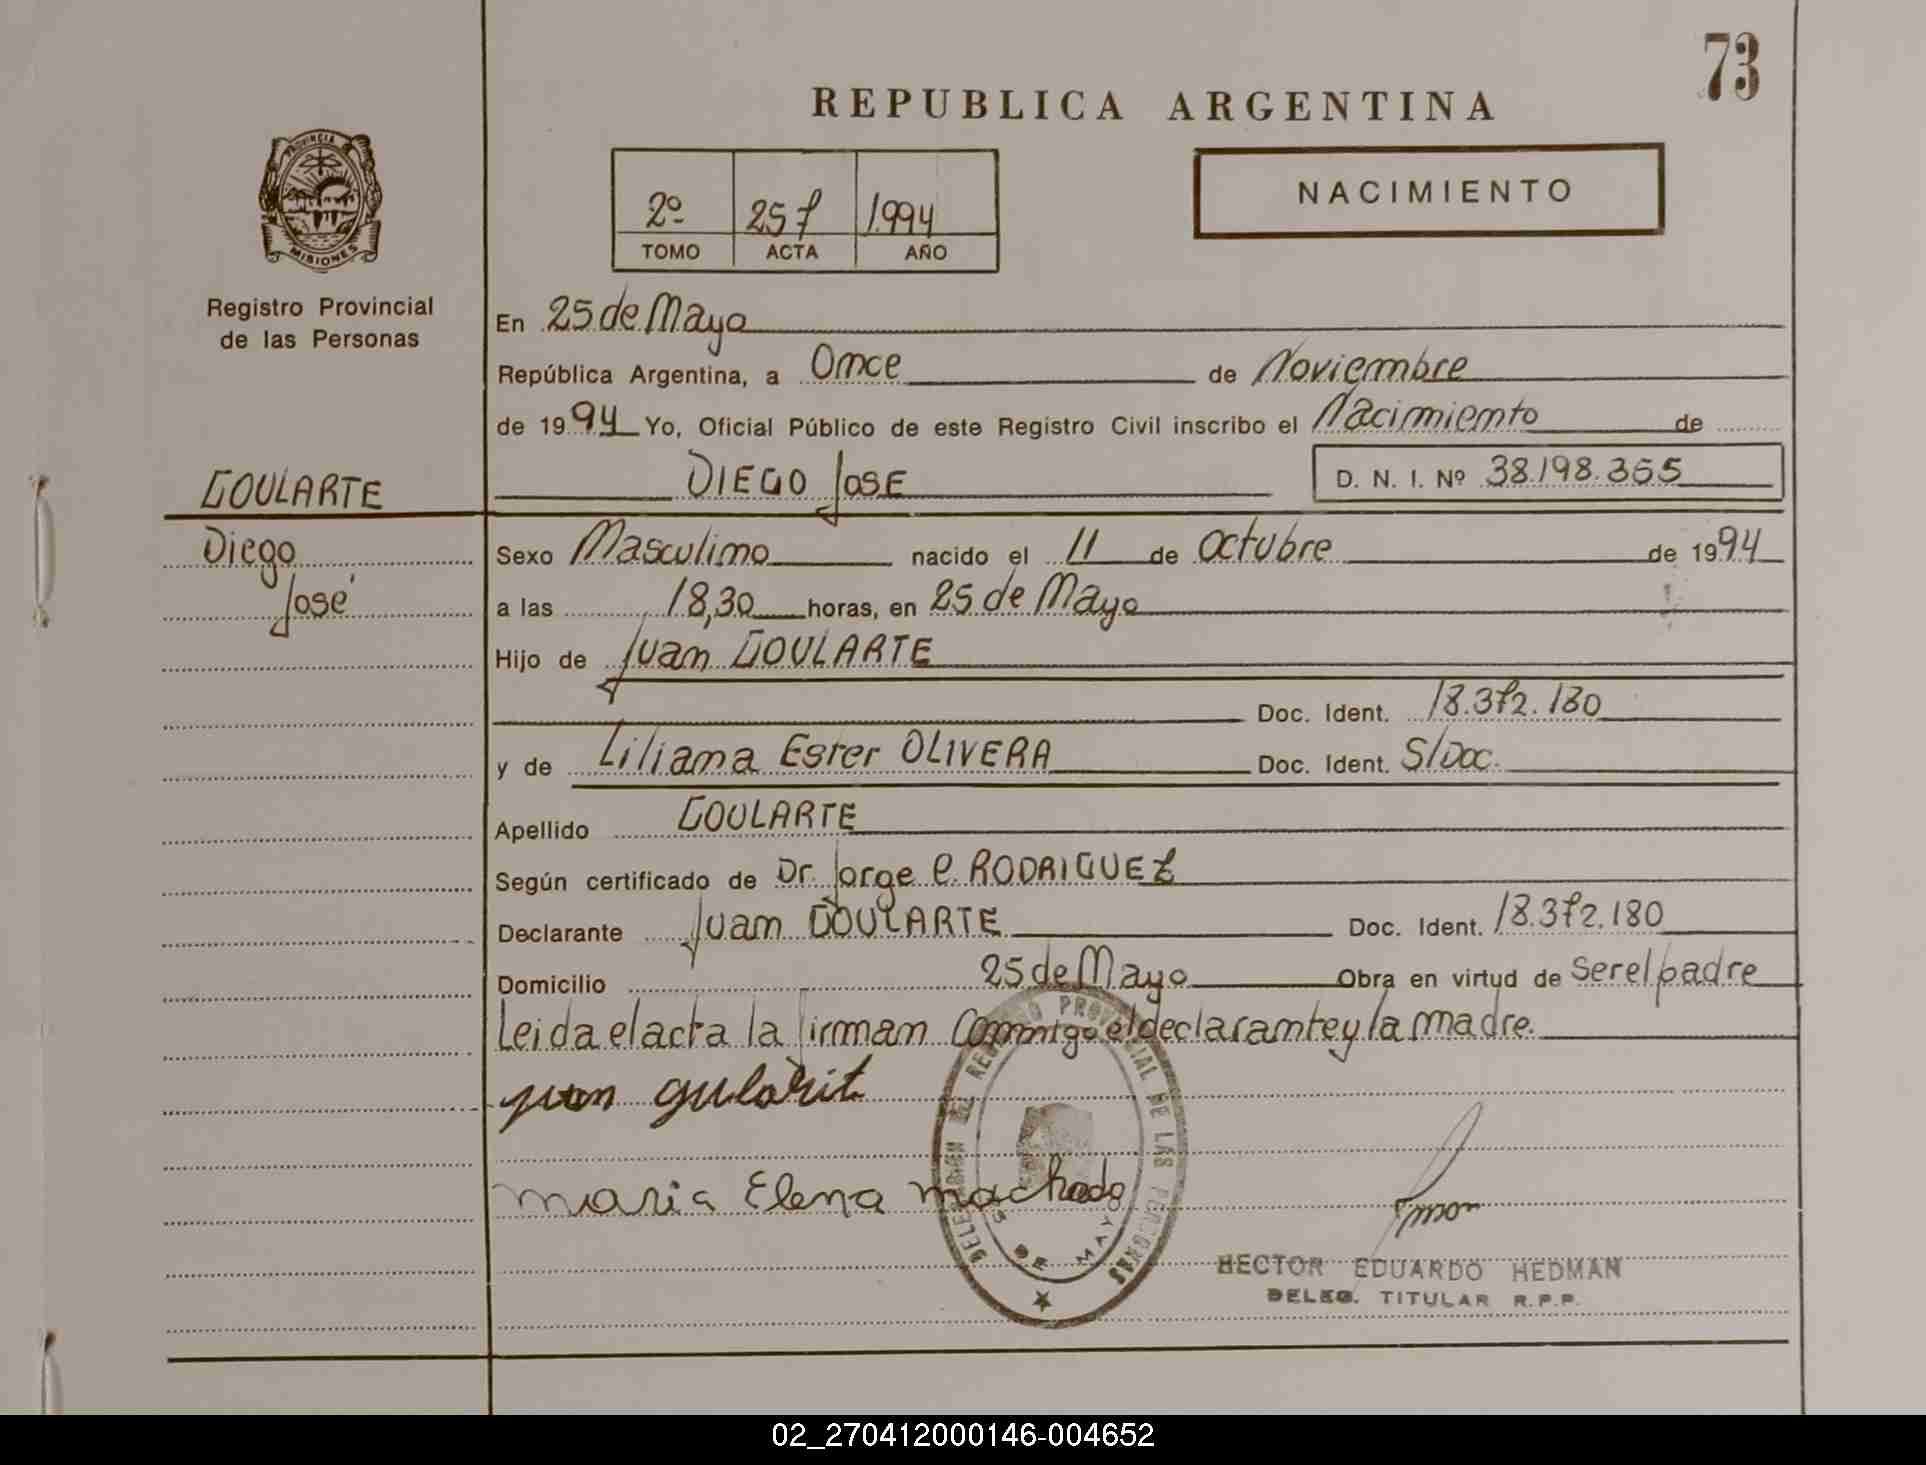 73
REPUBLICA ARGENTINA
2º 257 1994
TOMO ACTA AÑO
NACIMIENTO
PROVINCIA
MISIONES
Registro Provincial
de las Personas
En 25 de Mayo
República Argentina, a Once de Noviembre
de 1994 Yo, Oficial Público de este Registro Civil inscribo el Nacimiento de
GOULARTE
DIEGO JOSE D. N. I. Nº 38.198.365
Diego
José
Sexo Masculino nacido el 11 de octubre de 1994
a las 18,30 horas, en 25 de Mayo
Hijo de Juan GOULARTE
Doc. Ident. 18.372.180
y de Liliana Ester OLIVERA Doc. Ident. S/Doc.
Apellido GOULARTE
Según certificado de Dr. Jorge C. RODRIGUEZ
Declarante Juan GOULARTE Doc. Ident. 18.372.180
Domicilio 25 de Mayo Obra en virtud de ser el padre
Leida el acta la firman Conmigo el declarante y la madre.
juan gularit
maria Elena machado
DELEGACION DEL REGISTRO PROVINCIAL DE LAS PERSONAS
25 DE MAYO
HECTOR EDUARDO HEDMAN
DELEG. TITULAR R.P.P.
02_270412000146-004652